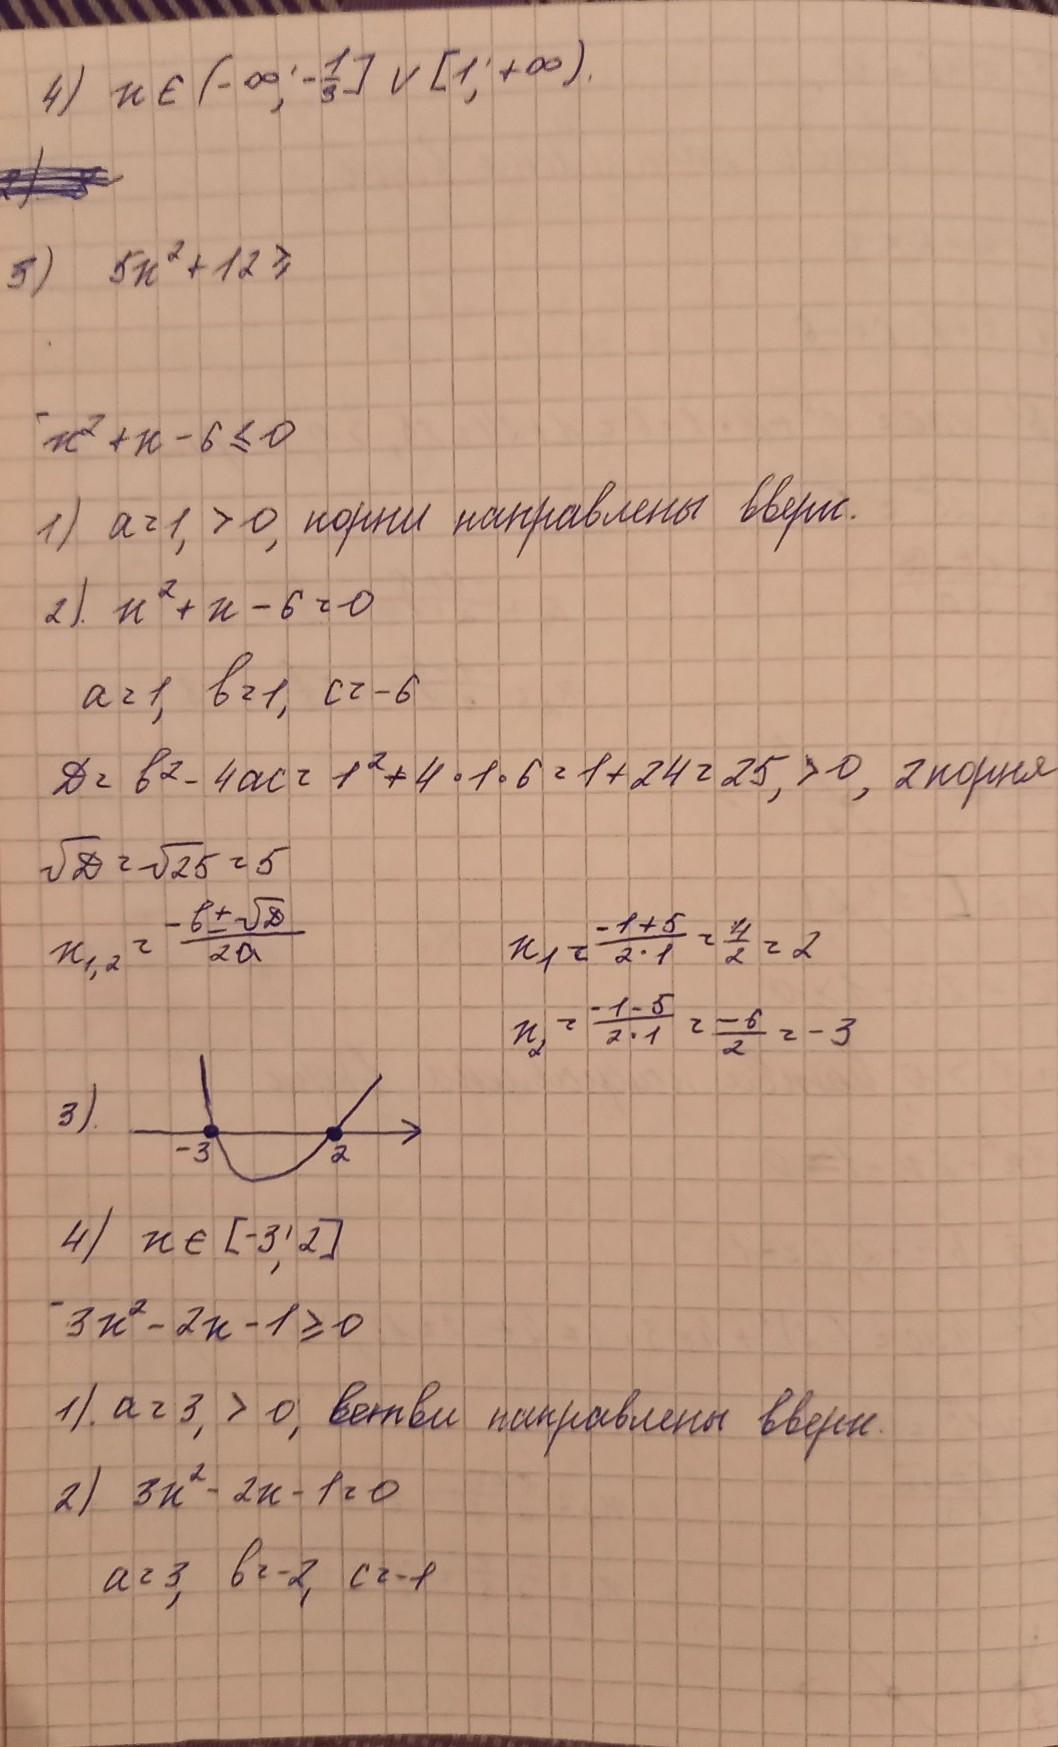 4) x ∈ (-∞; -1/3] ∨ [1; +∞).
5) 5x² + 12 ≥
x² + x - 6 ≤ 0
1) a = 1, > 0, корни направлены вверх.
2). x² + x - 6 = 0
a = 1, b = 1, c = -6
D = b² - 4ac = 1² + 4·1·6 = 1 + 24 = 25, > 0, 2 корня
√D = √25 = 5
x₁,₂ = (-b ± √D)/2a
x₁ = (-1+5)/(2·1) = 4/2 = 2
x₂ = (-1-5)/(2·1) = -6/2 = -3
3).
-3 2
4) x ∈ [-3; 2]
3x² - 2x - 1 ≥ 0
1). a = 3, > 0, ветви направлены вверх.
2) 3x² - 2x - 1 = 0
a = 3, b = -2, c = -1